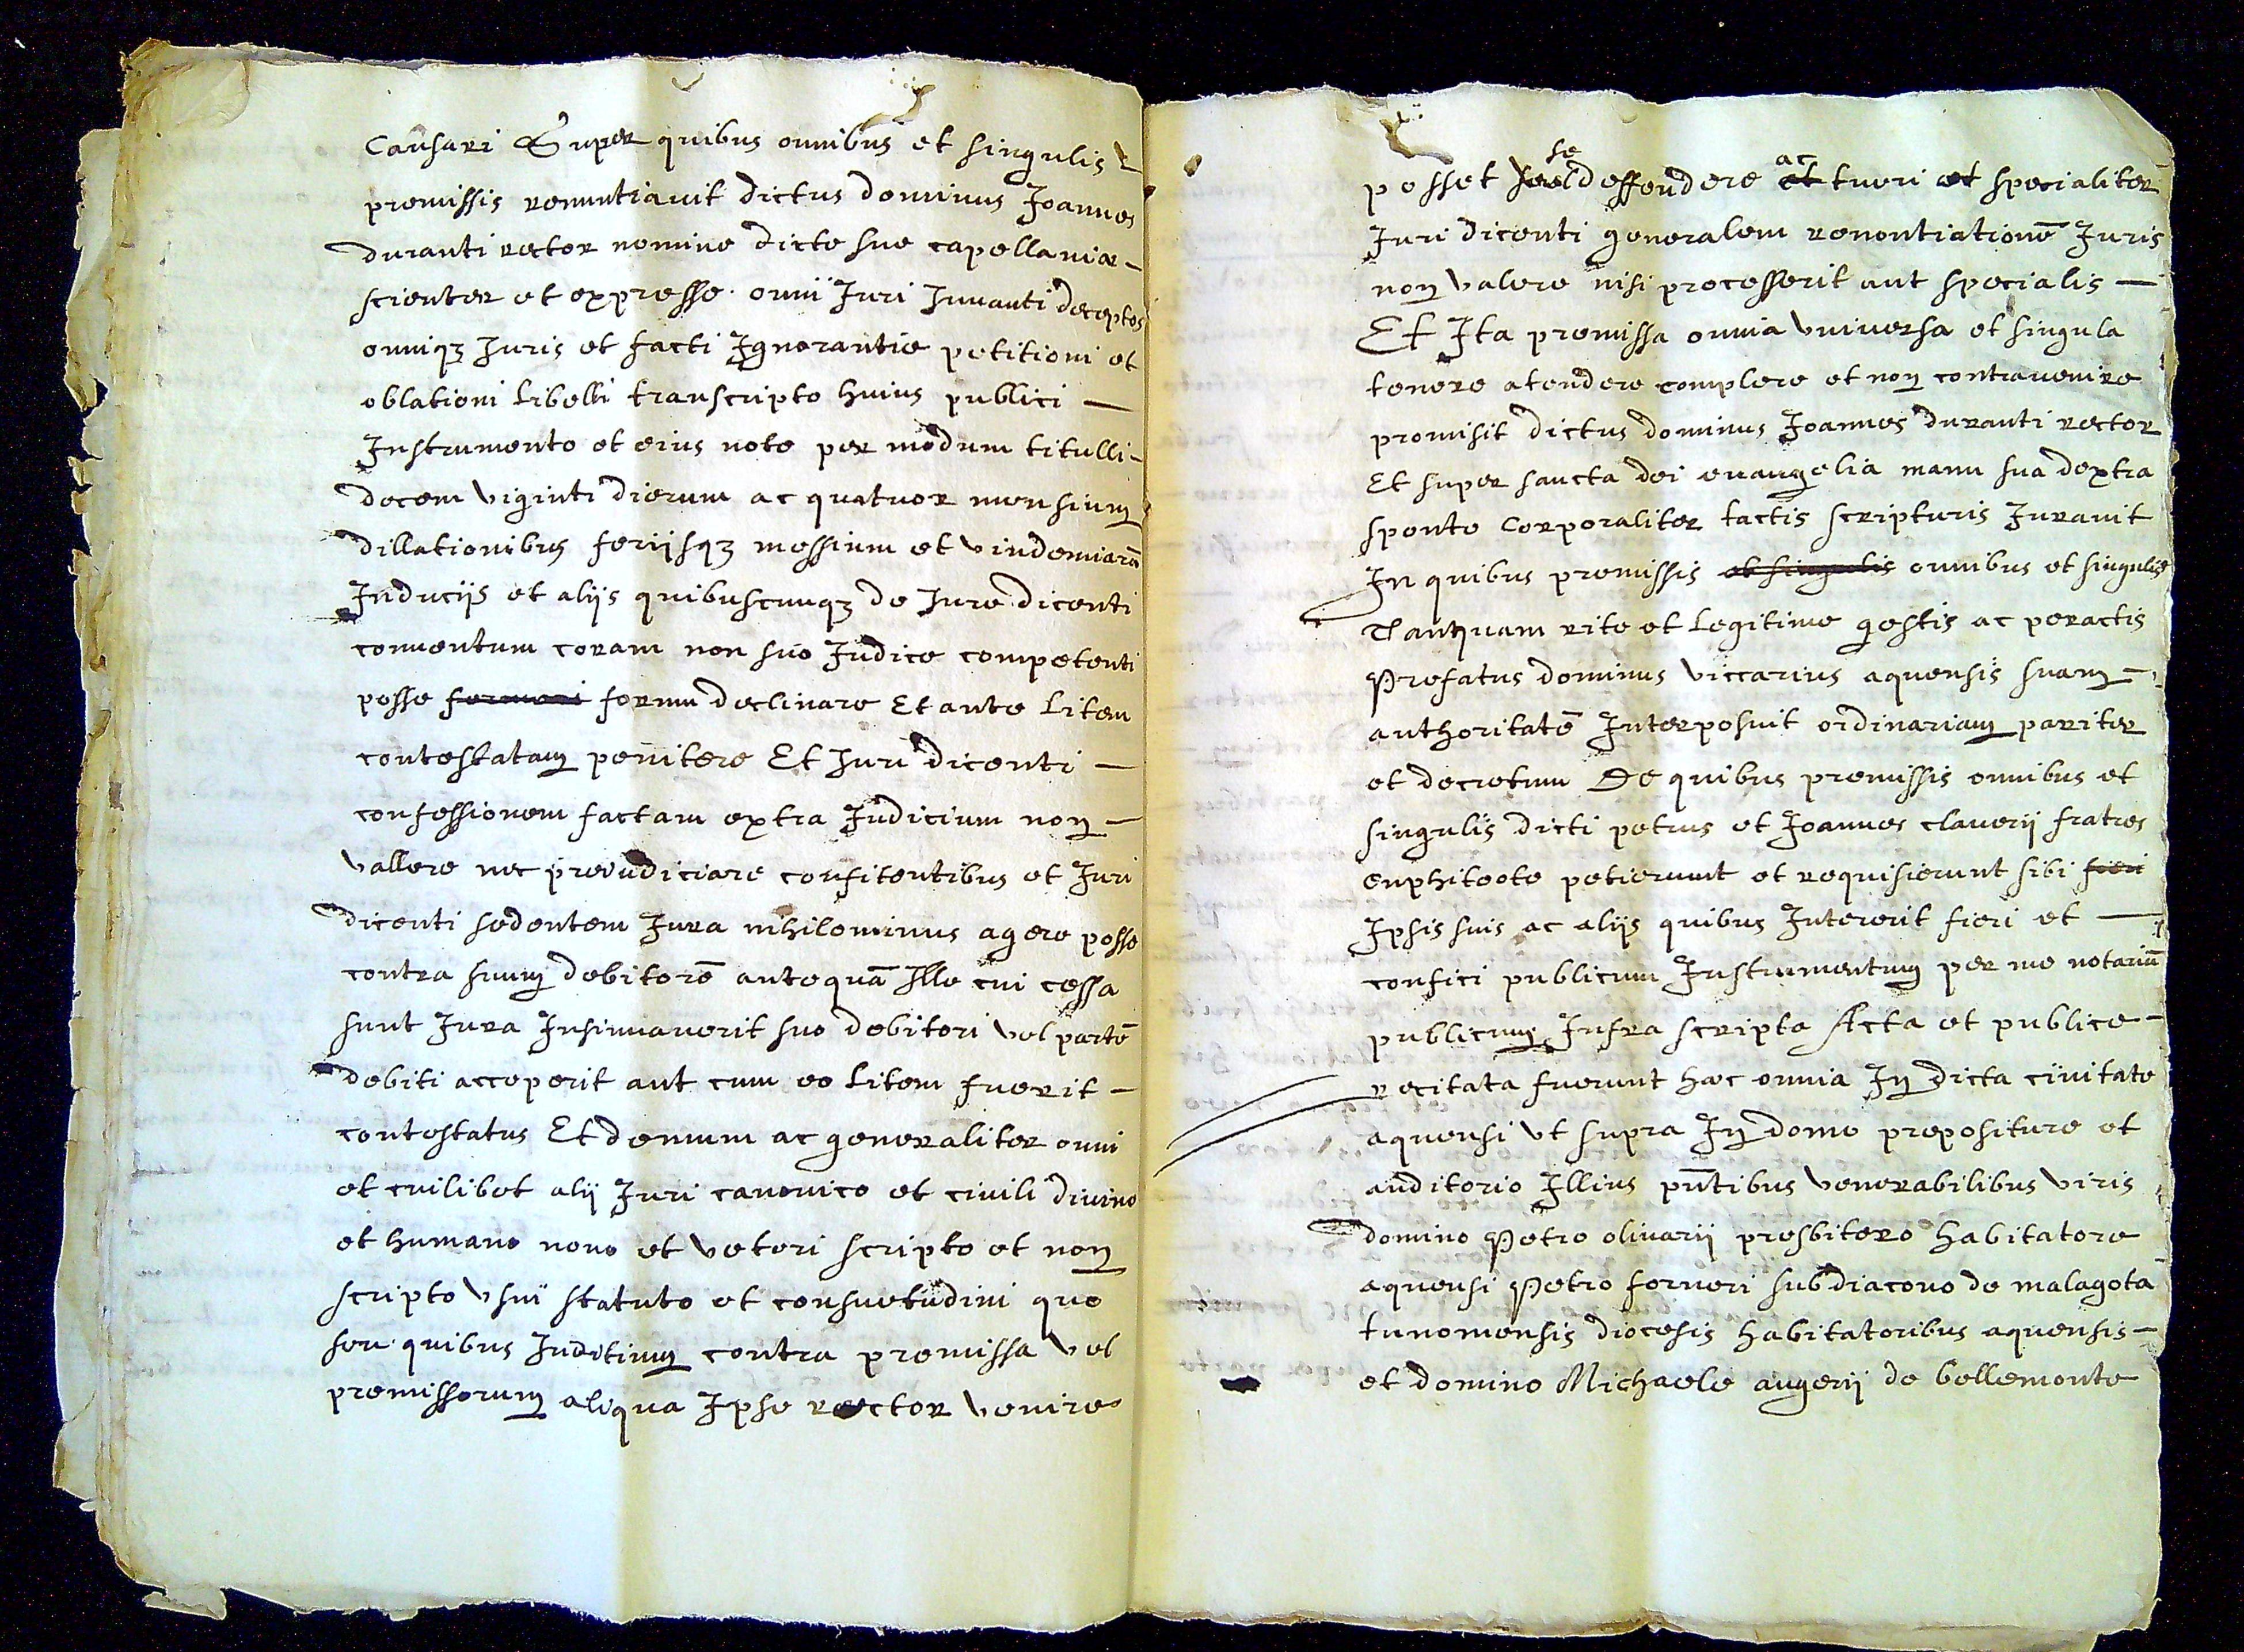 Causari Super quibus omnibus et singulis
premissis renuntiavit dictus dominus Joannes
duranti rector nomine dicte sue capellaniæ –
scienter et expresse omni Juri Juvanti deceptos
omniqꝫ Juris et facti Ignorantie petitioni et
oblationi libelli transcripto huius publici —
Instrumento et eius note per modum titulli –
decem viginti dierum ac quatuor mensium
dillationibus ferijsqꝫ messium et vindemiarū
Inducijs et alijs quibuscunqꝫ de Jure dicenti
conventum coram non suo Judice competenti
posse forum declinare Et ante litem
contestatam penitere Et Juri dicenti —
confessionem factam extra Judicium non –
vallere nec preiudiciare confitentibus et Juri
dicenti sedentem Jura nihilominus agere posse
contra suum debitorē antequā Ille cui cessa
sunt Jura Insinuaverit suo debitori vel partē
debiti acceperit aut cum eo litem fuerit –
contestatus Et demum ac generaliter omni
et cuilibet alij Juri canonico et civili divino
et humano novo et veteri scripto et non
scripto vsui statuto et consuetudini quo
seu quibus Inditium contra premissa vel
premissorum aliqua Ipse rector venire
posset se deffendere ac tueri et specialiter
Juri dicenti generalem renontiationē Juris
non valere nisi processerit aut specialis —
Et Ita premissa omnia vniversa et singula
tenere atendere complere et non contravenire
promisit dictus dominus Joannes duranti rector
Et super sancta dei evangelia manu sua dextra
sponte corporaliter tactis scripturis Juravit
In quibus premissis et singulis omnibus et singulis
Tanquam rite et legitime gestis ac peractis
Prefatus dominus viccarius aquensis suam –
authoritatē Interposuit ordinariam pariter
et decretum De quibus premissis omnibus et
singulis dicti petrus et Joannes claverij fratres
enphiteote petierunt et requisierunt sibi fieri
Ipsis suis ac alijs quibus Intererit fieri et —
confici publicum Instrumentum per me notariū
publicum Infra scripto Acta et publice –
recitata fuerunt hæc omnia In dicta civitate
aquensi vt supra In domo prepositure et
auditorio Illius pn̄tibus venerabilibus viris
domino Petro olivarij presbitero habitatore
aquensi Petro forneri subdiacono de malagota
tunomensis diocesis habitatoribus aquensis –
et domino Michaele augerij de bellemonte